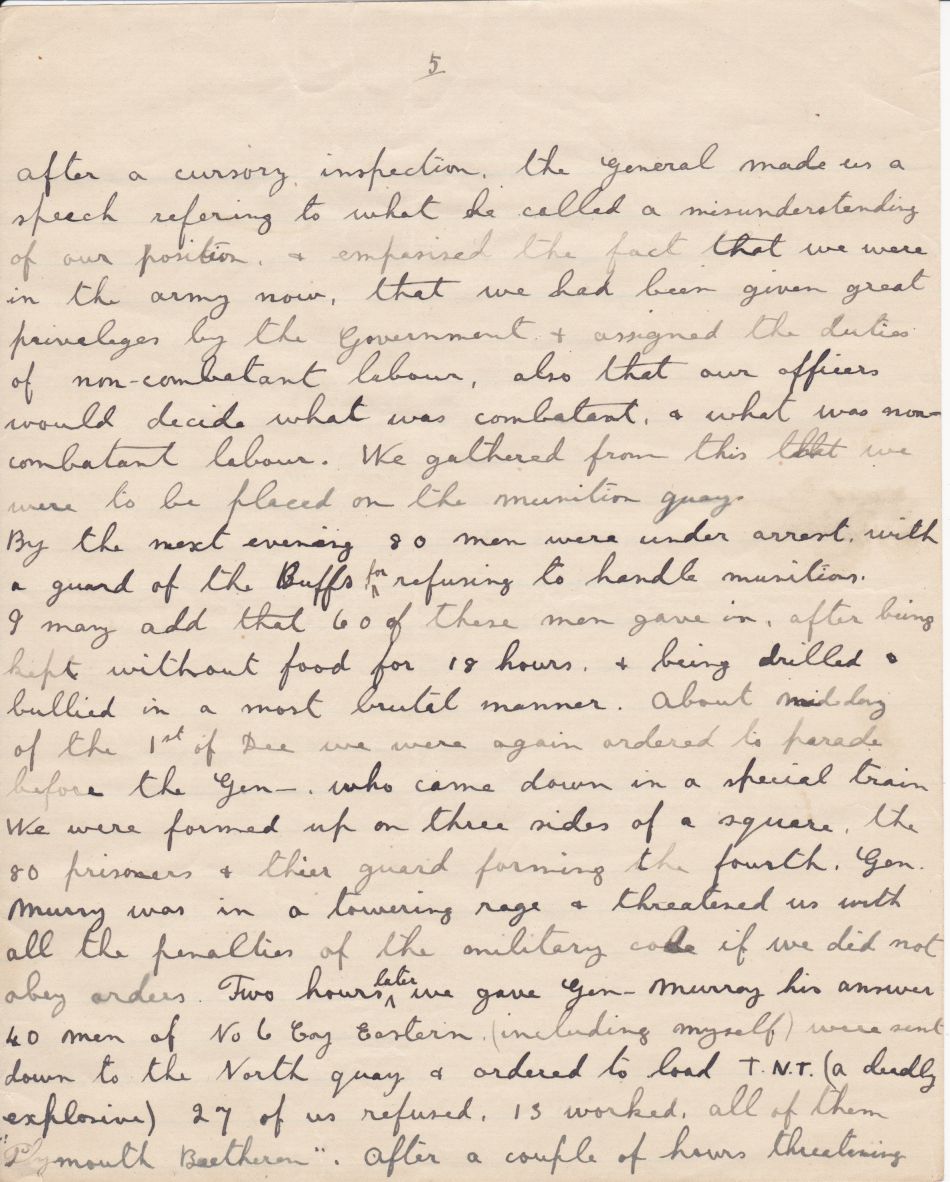 5
after a cursory inspection, the General made us a
speech refering to what he called a misunderstanding
of our position, & empasised the fact that we were
in the army now, that we had been given great
priveleges by the Government & assigned the duties
of non-combatant labour, also that our officers
would decide what was combatant, & what was non-
combatant labour. We gathered from this that we
were to be placed on the munition quay.
By the next evening 80 men were under arrest, with
a guard of the Buffs for refusing to handle munitions.
I may add that 60 of these men gave in, after being
kept without food for 18 hours, & being drilled &
bullied in a most brutal manner. About midday
of the 1st of Dec we were again ordered to parade
before the Gen—. who came down in a special train
We were formed up on three sides of a square, the
80 prisoners & thier guard forming the fourth. Gen.
Murry was in a towering rage & threatened us with
all the penalties of the military code if we did not
obey orders. Two hours later we gave Gen— Murray his answer
40 men of No 6 Coy Eastern (including myself) were sent
down to the North quay & ordered to load T.N.T. (a deadly
explosive) 27 of us refused, 13 worked, all of them
"Plymouth Bretheren". After a couple of hours threatening